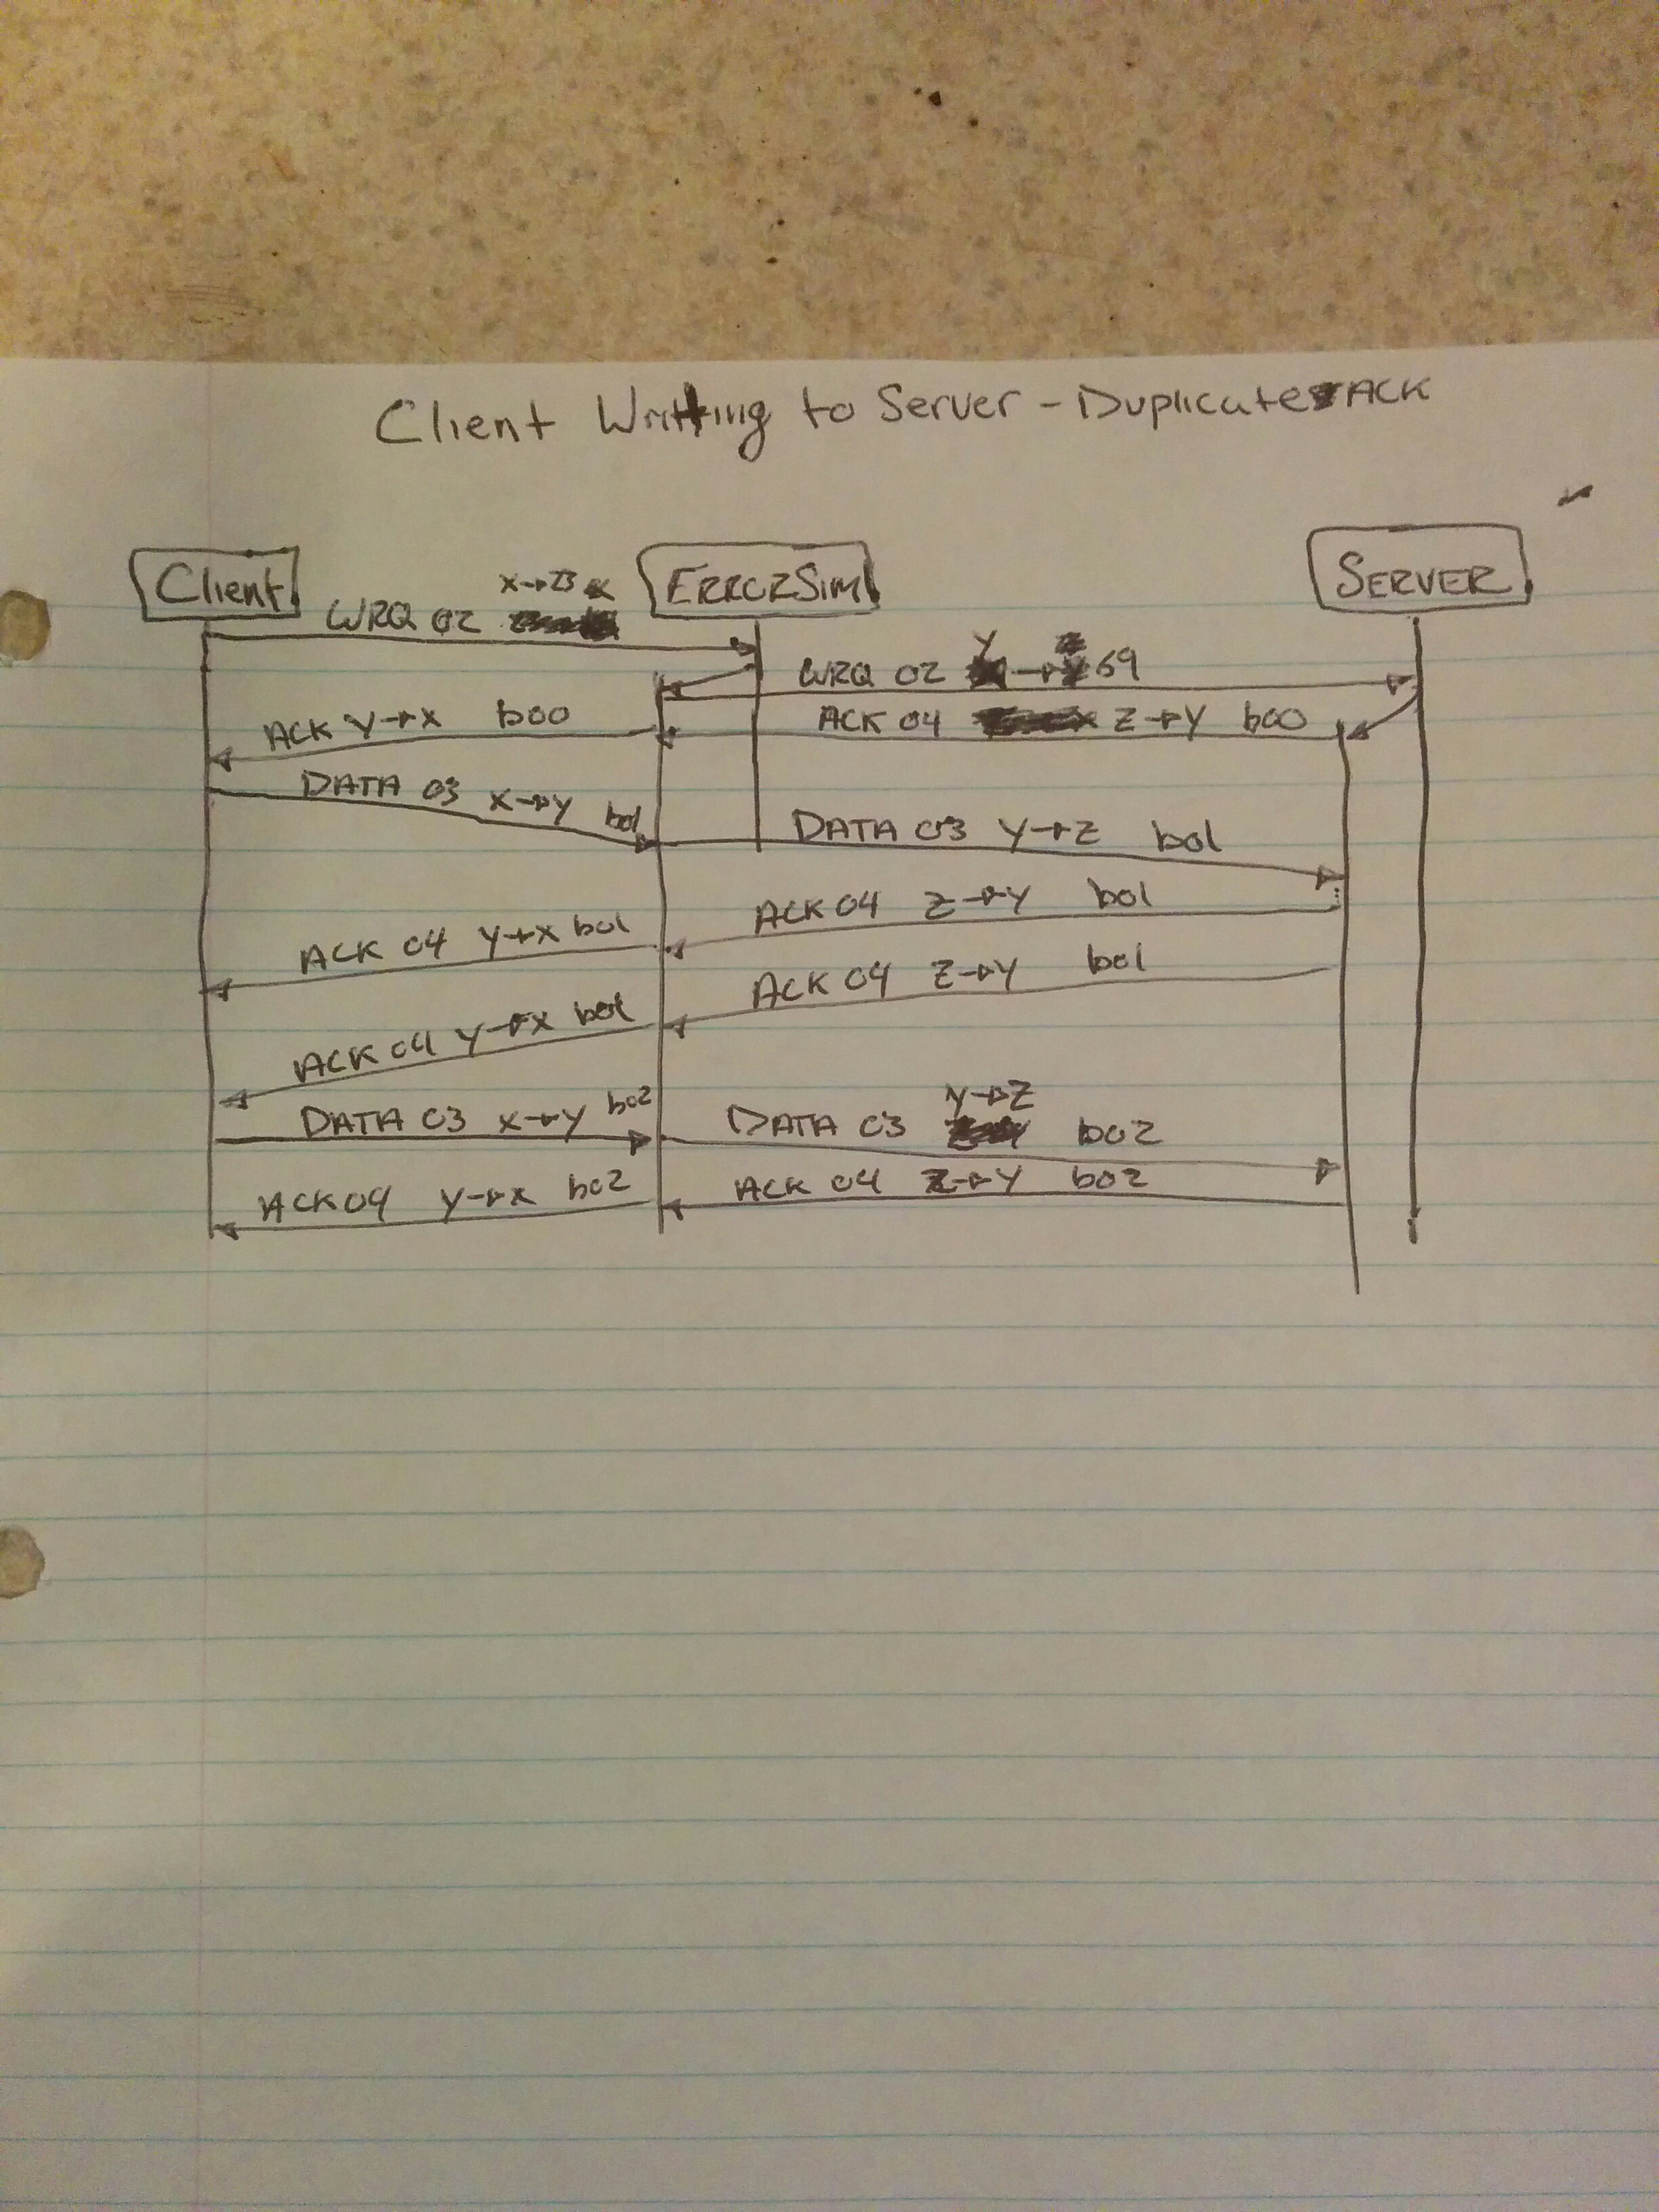 Client Writting to Server - Duplicate ACK
Client ErrorSim SERVER
x→23
WRQ 02
y
WRQ 02 → 69
ACK y→x b00
ACK 04 z→y b00
DATA 03 x→y b01
DATA 03 y→z b01
ACK 04 z→y b01
ACK 04 y→x b01
ACK 04 z→y b01
ACK 04 y→x b01
DATA 03 x→y b02
y→z
DATA 03 b02
ACK 04 y→x b02
ACK 04 z→y b02